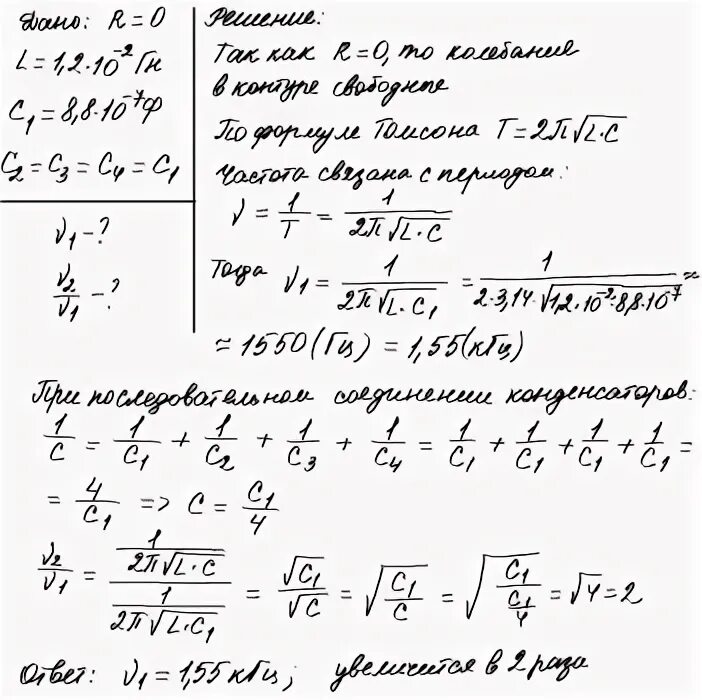 Дано: R = 0
L = 1,2·10⁻² Гн
C₁ = 8,8·10⁻⁷ Ф
C₂ = C₃ = C₄ = C₁
ν₁ - ?
ν₂/ν₁ - ?
Решение:
Так как R = 0, то колебания
в контуре свободные
По формуле Томсона T = 2π√(L·C)
Частота связана с периодом:
ν = 1/T = 1/(2π√(L·C))
Тогда ν₁ = 1/(2π√(L·C₁)) = 1/(2·3,14·√(1,2·10⁻²·8,8·10⁻⁷)) ≈
≈ 1550 (Гц) = 1,55 (кГц)
При последовательном соединении конденсаторов:
1/C = 1/C₁ + 1/C₂ + 1/C₃ + 1/C₄ = 1/C₁ + 1/C₁ + 1/C₁ + 1/C₁ =
= 4/C₁ => C = C₁/4
ν₂/ν₁ = (1/(2π√(L·C)))/(1/(2π√(L·C₁))) = √C₁/√C = √(C₁/C) = √(C₁/(C₁/4)) = √4 = 2
Ответ: ν₁ = 1,55 кГц; увеличится в 2 раза